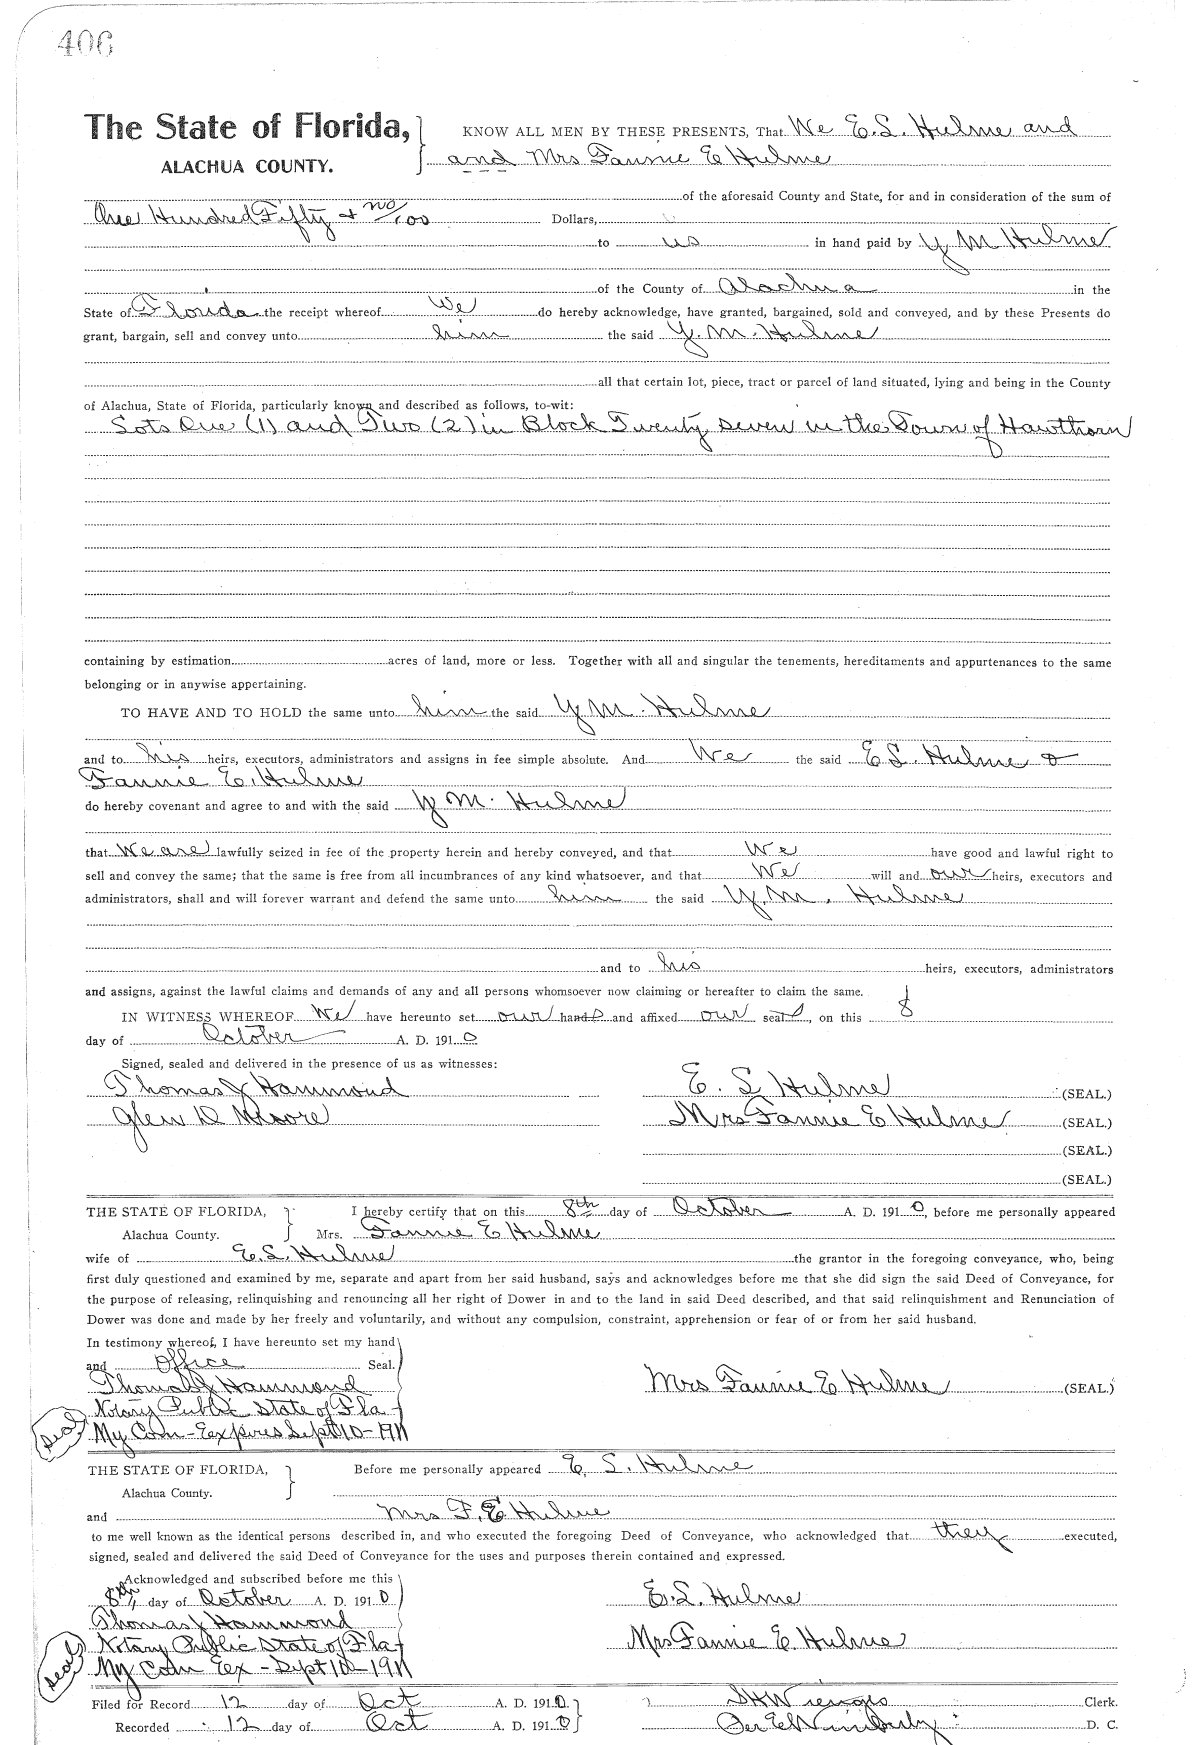 406
The State of Florida, KNOW ALL MEN BY THESE PRESENTS, That We E. S. Hulme and
ALACHUA COUNTY. and Mrs Fannie E Hulme
of the aforesaid County and State, for and in consideration of the sum of
One Hundred Fifty + no/100 Dollars,
to us in hand paid by Y M Hulme
of the County of Alachua in the
State of Florida the receipt whereof We do hereby acknowledge, have granted, bargained, sold and conveyed, and by these Presents do
grant, bargain, sell and convey unto him the said Y. M. Hulme
all that certain lot, piece, tract or parcel of land situated, lying and being in the County
of Alachua, State of Florida, particularly known and described as follows, to-wit:
Lots One (1) and Two (2) in Block Twenty seven in the Town of Hawthorn
containing by estimation acres of land, more or less. Together with all and singular the tenements, hereditaments and appurtenances to the same
belonging or in anywise appertaining.
TO HAVE AND TO HOLD the same unto him the said Y M. Hulme
and to his heirs, executors, administrators and assigns in fee simple absolute. And We the said E S. Hulme &
Fannie E. Hulme
do hereby covenant and agree to and with the said Y M. Hulme
that We are lawfully seized in fee of the property herein and hereby conveyed, and that We have good and lawful right to
sell and convey the same; that the same is free from all incumbrances of any kind whatsoever, and that We will and our heirs, executors and
administrators, shall and will forever warrant and defend the same unto him the said Y. M. Hulme
and to his heirs, executors, administrators
and assigns, against the lawful claims and demands of any and all persons whomsoever now claiming or hereafter to claim the same.
IN WITNESS WHEREOF We have hereunto set our hands and affixed our seals, on this 8
day of October A. D. 1910
Signed, sealed and delivered in the presence of us as witnesses:
Thomas J Hammond E. S Hulme (SEAL.)
Glen D Moore Mrs Fannie E Hulme (SEAL.)
(SEAL.)
(SEAL.)
THE STATE OF FLORIDA, I hereby certify that on this 8th day of October A. D. 1910, before me personally appeared
Alachua County. Mrs. Fannie E Hulme
wife of E. S. Hulme the grantor in the foregoing conveyance, who, being
first duly questioned and examined by me, separate and apart from her said husband, says and acknowledges before me that she did sign the said Deed of Conveyance, for
the purpose of releasing, relinquishing and renouncing all her right of Dower in and to the land in said Deed described, and that said relinquishment and Renunciation of
Dower was done and made by her freely and voluntarily, and without any compulsion, constraint, apprehension or fear of or from her said husband.
In testimony whereof, I have hereunto set my hand
and Office Seal.
Thomas J Hammond Mrs Fannie E Hulme (SEAL.)
Notary Public State of Fla
seal My Com - Eexpires Sept 10 - 1911
THE STATE OF FLORIDA, Before me personally appeared E. S. Hulme
Alachua County.
and Mrs F. E Hulme
to me well known as the identical persons described in, and who executed the foregoing Deed of Conveyance, who acknowledged that they executed,
signed, sealed and delivered the said Deed of Conveyance for the uses and purposes therein contained and expressed.
Acknowledged and subscribed before me this
8th day of October A. D. 1910 E. S. Hulme
Thomas J Hammond
Notary Public State of Fla Mrs Fannie E. Hulme
seal My Com Ex - Sept 10 - 1911
Filed for Record 12 day of Oct A. D. 1910 S H Wienges Clerk.
Recorded 12 day of Oct A. D. 1910 Per E Wimberly D. C.